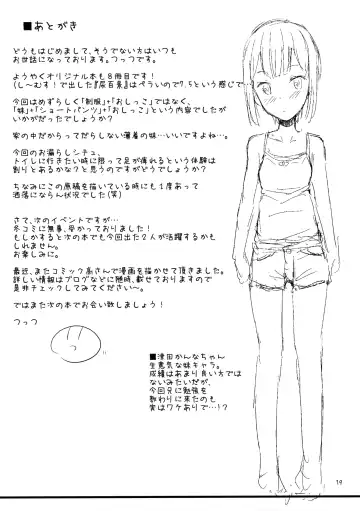 ■あとがき
どうもはじめまして、そうでない方はいつも
お世話になっております。つっつです。
ようやくオリジナル本も8冊目です！
(し〜むす！で出した『尿百景』はペラいので7.5という感じで…
今回はめずらしく「制服」+「おしっこ」ではなく、
「妹」+「ショートパンツ」+「おしっこ」という内容でしたが
いかがだったでしょうか？
家の中だからってだらしない薄着の妹…いいですよね…。
今回のお漏らしシチュ、
トイレに行きたい時に限って足が痺れるという体験は
割りとあるかな？と思うのですがどうでしょうか？
ちなみにこの原稿を描いている時にも1度あって
洒落にならん状況でした(笑)
さて、次のイベントですが…
冬コミに無事、受かっておりました！
もしかすると次の本でも今回出た2人が活躍するかも
しれません。
お楽しみに。
最近、またコミック系さんで漫画を描かせて頂きました。
詳しい情報はブログなどに随時、載せておりますので
是非チェックしてみてください〜。
ではまた次の本でお会い致しましょう！
つっつ
■津田かんなちゃん
生意気な妹キャラ。
成績はあまり良い方では
ないみたいだが、
今回兄に勉強を
教わりに来たのも
実はワケありで…!?
19